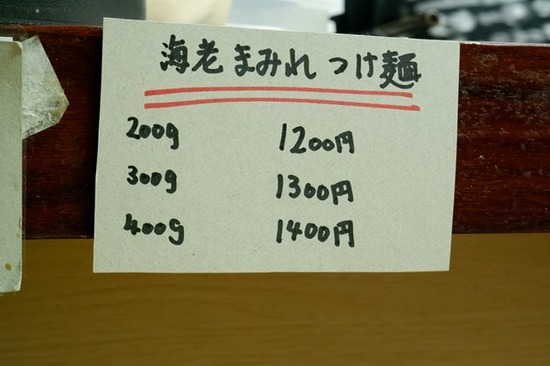 海老まみれつけ麺
200g 1200円
300g 1300円
400g 1400円